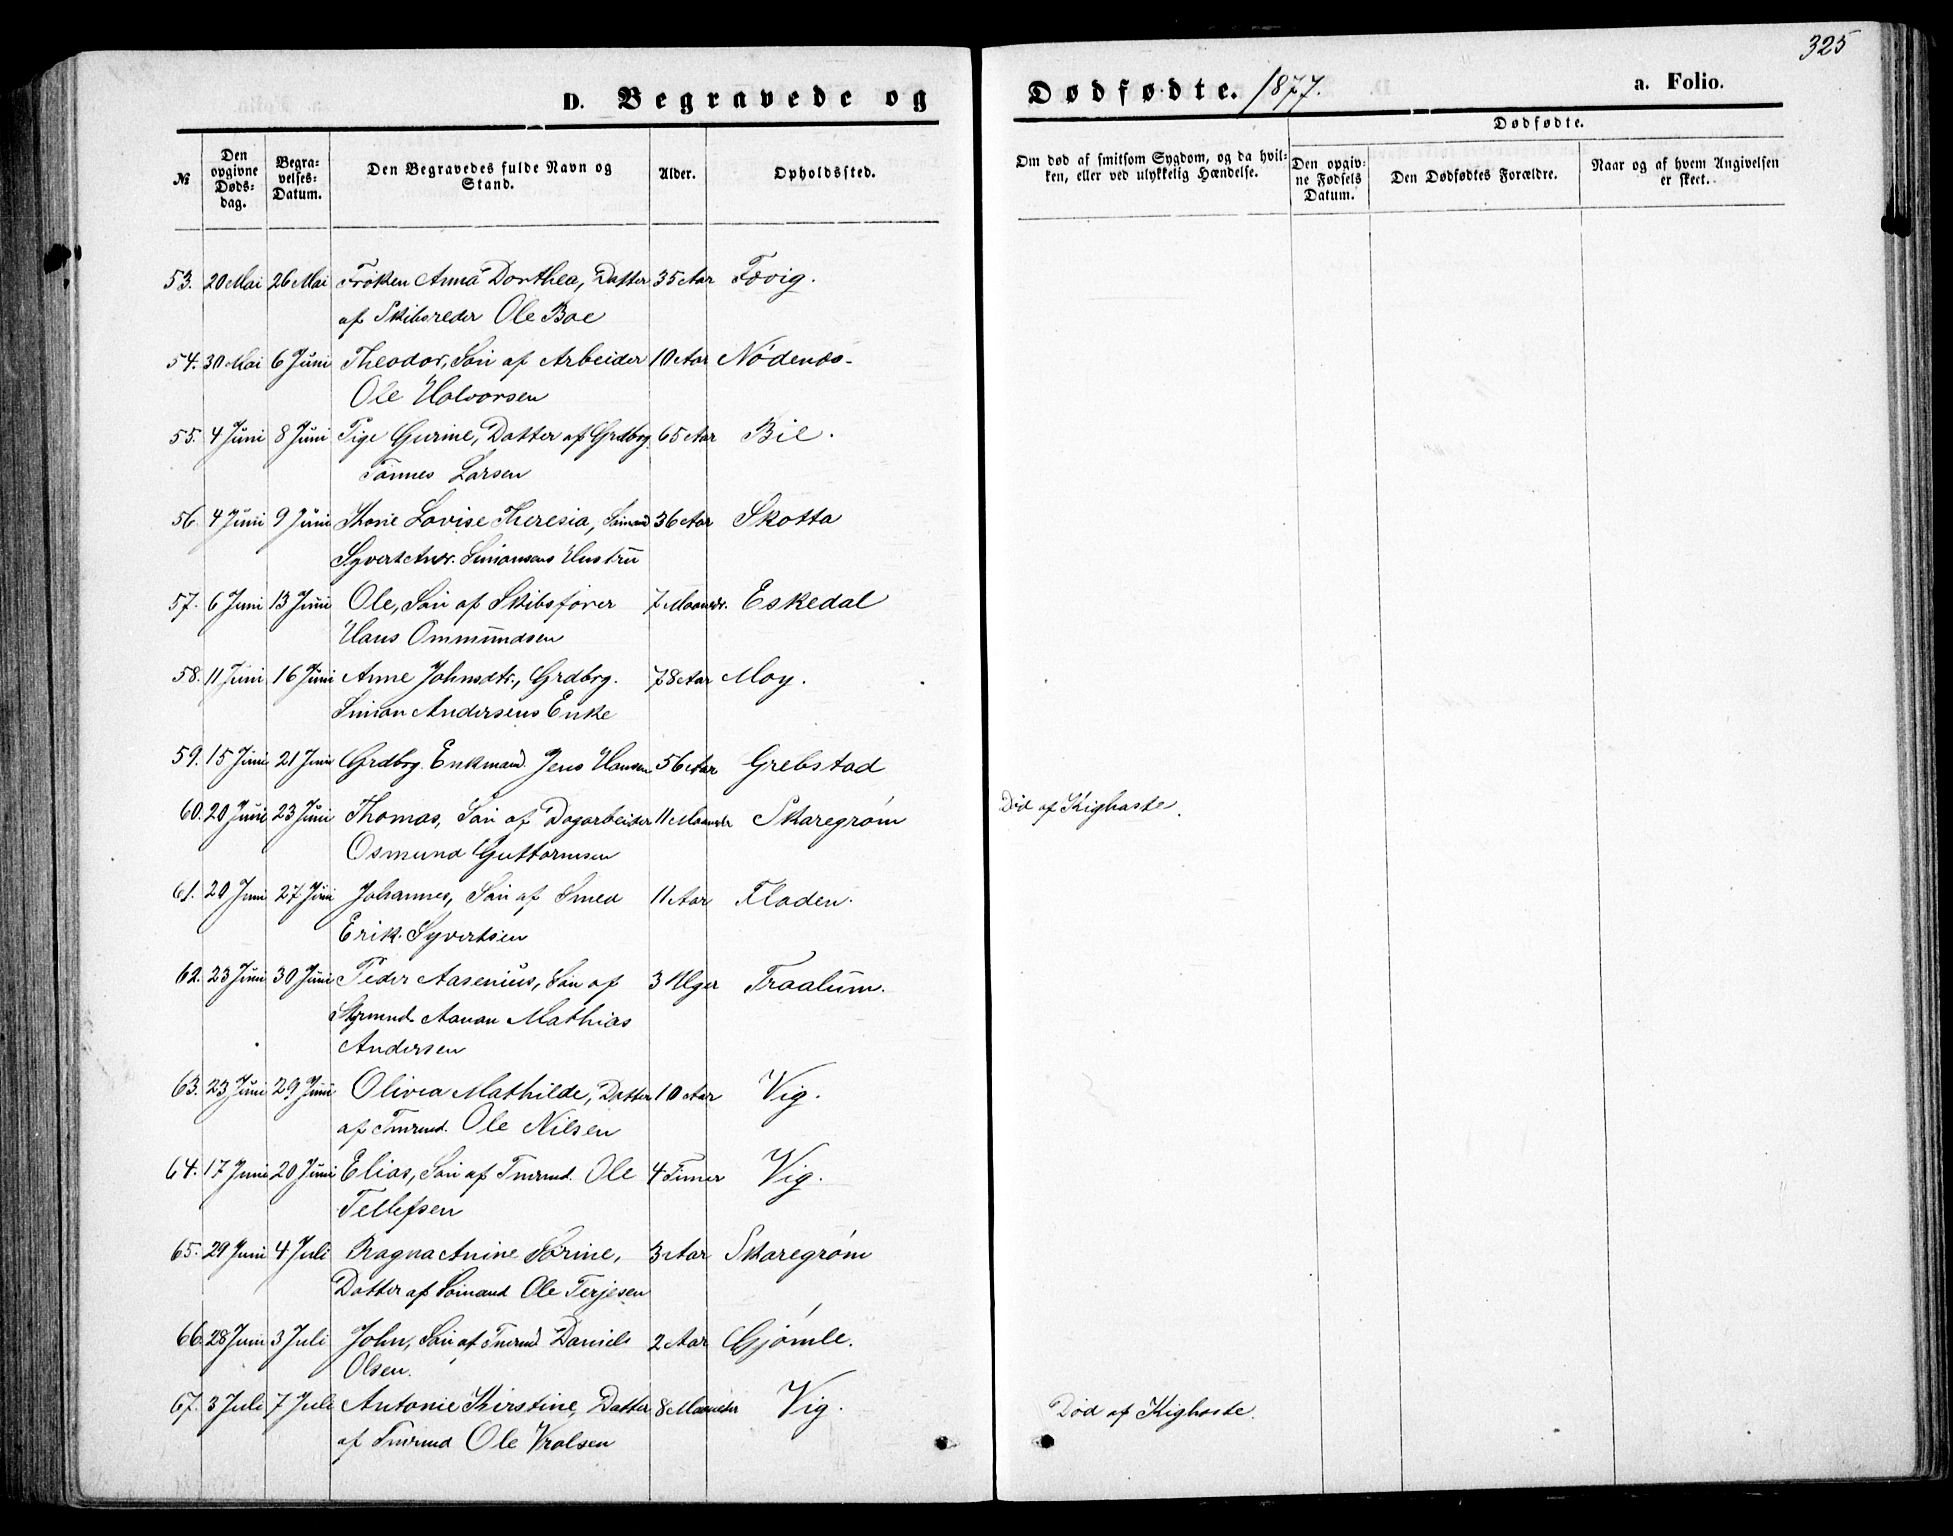 325
D. Begravede og Dødfødte. 1877. a. Folio.
№
Den opgivne Døds-dag.
Begra-velses-Datum.
Den Begravedes fulde Navn og Stand.
Alder.
Opholdssted.
Om død af smitsom Sygdom, og da hvil-ken, eller ved ulykkelig Hændelse.
Dødfødte.
Den opgiv-ne Fødsels Datum.
Den Dødfødtes Forældre.
Naar og af hvem Angivelsen er skeet.
53. 20 Mai 26 Mai Frøken Anna Dorthea, Datter 35 Aar Fævig.
af Skibsreder Ole Boe
54. 30 Mai 6 Juni Theodor, Søn af Arbeider 10 Aar Nødenæs.
Ole Halvorsen
55. 4 Juni 8 Juni Pige Gurine, Datter af Grdbrg. 65 Aar Bie.
Tønnes Larsen
56. 4 Juni 9 Juni Lovise Theresia, Sømand 36 Aar Skotta
Syvert Andr. Simonsens Hustru
57. 6 Juni 13 Juni Ole, Søn af Skibsfører 7 Maander. Eskedal
Hans Ommundsen
58. 11 Juni 16 Juni Anne Johnsdtr., Grdbrg. 78 Aar Moy.
Simon Andersens Enke
59. 15 Juni 21 Juni Grdbrg. Enkmand Jens Hansen 56 Aar Grebstad
60. 20 Juni 23 Juni Thomas, Søn af Dagarbeider 11 Maander Skaregrøm Død af Kighoste.
Osmund Guttormsen
61. 20 Juni 27 Juni Johannes, Søn af Smed 11 Aar Fladen.
Erik Syvertsen
62. 23 Juni 30 Juni Peder Aasenius, Søn af 3 Uger Traalum.
Styrmd. Aanon Mathias
Andersen
63. 23 Juni 29 Juni Olivia Mathilde, Datter 10 Aar Vig.
af Tmrmd. Ole Nilsen
64. 17 Juni 20 Juni Elias, Søn af Tmrmd. Ole 4 Timer Vig.
Tellefsen
65. 29 Juni 4 Juli Ragna Anine Sørine, 3 Aar Skaregrøm
Datter af Sømand Ole Terjesen
66. 28 Juni 3 Juli John, Søn af Tmrmd Daniel 2 Aar Gjømle.
Olsen.
67. 3 Juli 7 Juli Antonie Kirstine, Datter 8 Maaneder Vig. Død af Kighoste.
af Tmrmd Ole Vralsen